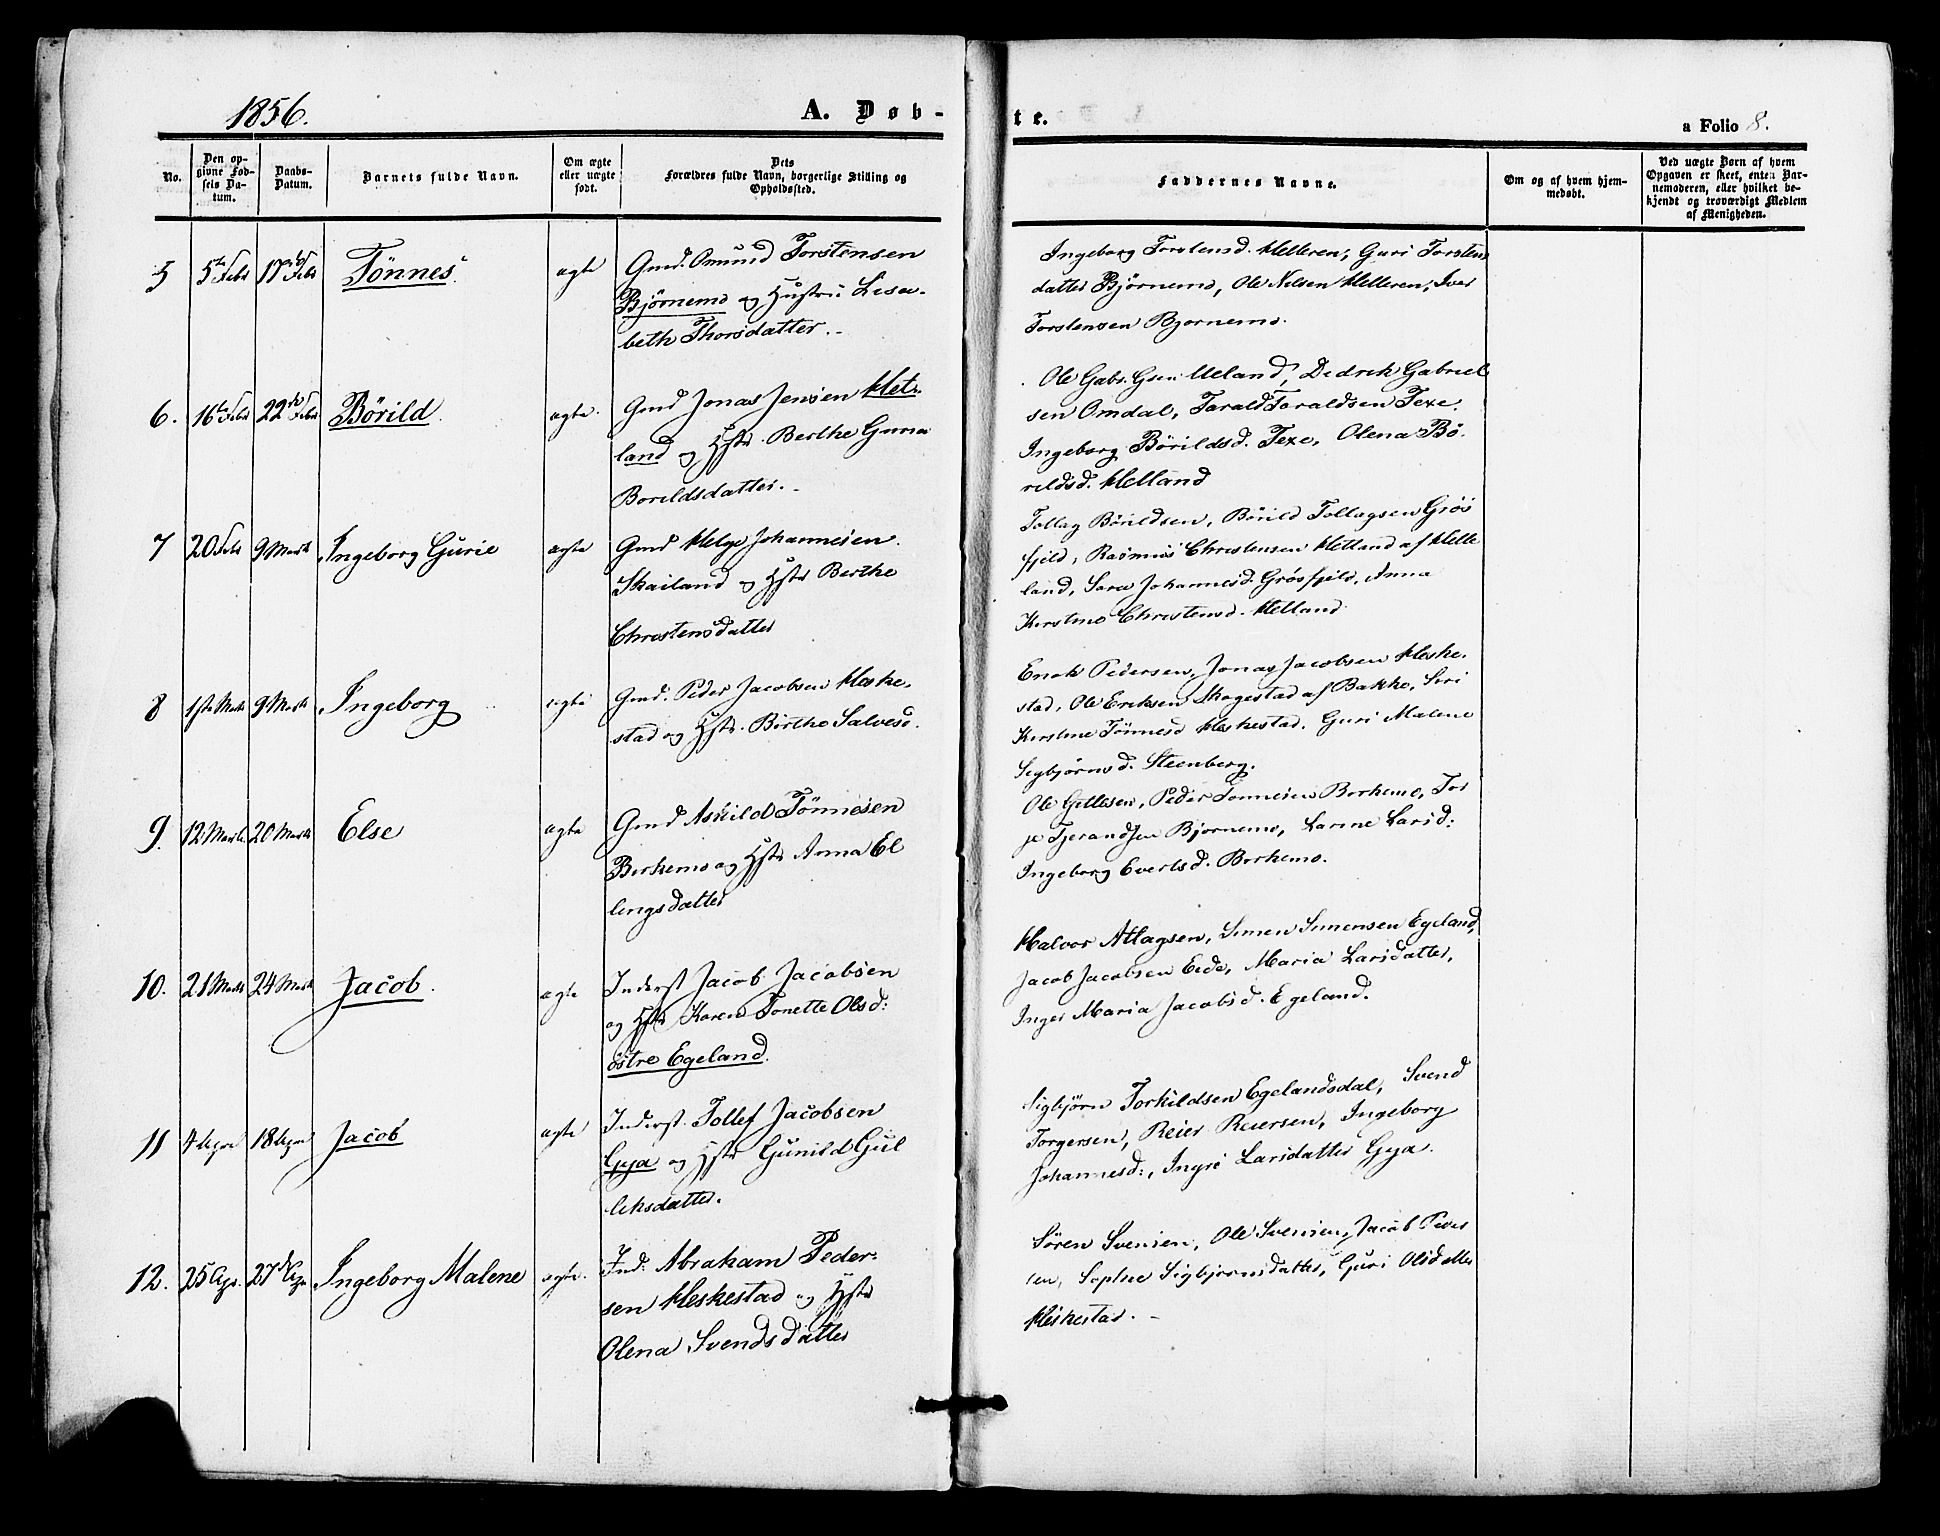 1856.
A. Døb-
te.
a Folio 8.
No.
Den op-
givne Fød-
sels Da-
tum.
Daabs-
Datum.
Barnets fulde Navn.
Om ægte
eller uægte
født.
Dets
Forældres fulde Navn, borgerlige Stilling og
Opholdssted.
Faddernes Navne.
Om og af hvem hjem-
medøbt.
Ved uægte Børn af hvem
Opgaven er skeet, enten Bar-
nemoderen, eller hvilket be-
kjendt og troværdigt Medlem
af Menigheden.
5 5te Febr 17de Febr Tönnes. ægte
Gmd. Omund Torstensen
Björnemo og Hustru Lisa-
beth Thorsdatter. -
Ingeborg Torstensd. Helleren, Guri Torstens
datter Björnemo, Ole Nilsen Helleren, Iver
Torstensen Bjornemo.
6. 16te Febr 22de Febr Börild. ægte.
Gmd Jonas Jensen Het-
land og Hstr. Berthe Guria
Borildsdatter. -
Ole Gabr. Gsen Ueland, Didrik Gabriel
sen Omdal, Tarald Taraldsen Texe.
Ingeborg Börildsd. Texe, Olena Bö-
rildsd. Hetland
7 20 Febr 9 Marts Ingeborg Gurie ægte
Gmd Helge Johannesen
Skailand og Hstr Berthe
Christensdatter
Tollag Börildsen, Börild Tollagsen Grös
fjeld, Rasmus Christensen Hetland af Helle
land, Sara Johannesd. Grösfjeld, Anna
Kirstine Christensd. Hetland.
8 1ste Marts 9 Marts Ingeborg ægte
Gmd. Peder Jacobsen Heske-
stad og Hstr. Birthe Salvesd.
Enok Pedersen, Jonas Jacobsen Heske-
stad, Ole Eriksen Skogestad af Bakke, Siri
Kirstine Tönnesd Heskestad, Guri Malene
Sigbjörnsd. Steenberg.
9. 12 Marts 20 Marts Else ægte
Gmd Askild Tönnesen
Birkemo og Hstr Anna El
lingsdatter
Ole Gitlesen, Peder Tonnesen Birkemo, Tor
je Tjerandsen Bjornemo, Larine Larsd:
Ingeborg Evertsd. Birkemo.
10. 21 Marts 24 Marts Jacob. ægte
Inderst Jacob Jacobsen
og Hstr Karen Tonette Olsd:
östre Egeland.
Halvor Atlagsen, Simen Simensen Egeland,
Jacob Jacobsen Eide, Maria Larsdatter,
Inger Maria Jacobsd. Egeland.
11 4 April 18 April Jacob ægte
Inderst. Tollef Jacobsen
Gya og Hstr Gunild Gul
leksdatter.
Sigbjörn Torkildsen Egelandsdal, Svend
Torgersen, Reier Reiersen, Ingeborg
Johannesd:, Ingri Larsdatter Gya.
12. 25 Apr. 27de Apr Ingeborg Malene ægte.
Ind. Abraham Peder-
sen Heskestad og Hstr
Olena Svendsdatter
Sören Svensen, Ole Svensen, Jacob Peder
sen, Sophie Sigbjornsdatter, Guri Olsdatter
Heskestad. -